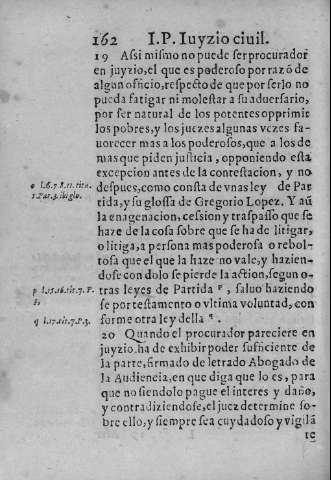 162 I.P. Iuyzio ciuil.
19 Assi mismo no puede ser procurador
en juyzio, el que es poderoso por razõ de
algun officio, respeto de que por serlo no
pueda fatigar ni molestar a su aduersario,
por ser natural de los potentes opprimir
los pobres, y los juezes algunas vezes fa-
uorecer mas a los poderosos, que a los de
mas que piden justicia, opponiendo esta
excepcion antes de la contestacion, y no
o l.6.7.8.11. titu.
despues, como consta de vnas ley de Par
1.Par.3. ibi glo.
tida, y su glossa de Gregorio Lopez. Y aũ
la enagenacion, cession y traspasso que se
haze de la cosa sobre que se ha de litigar,
o litiga, a persona mas poderosa o rebol-
tosa que el que la haze no vale, y hazien-
dose con dolo se pierde la action, segun o-
p l.15.16.tit.7. P.
tras leyes de Partida p, saluo haziendo
se por testamento o vltima voluntad, con
q l.17.tit.7.P.3.
forme otra ley della q.
20 Quando el procurador pareciere en
juyzio ha de exhibir poder sufficiente de
la parte, firmado de letrado Abogado de
la Audiencia, en que diga que lo es, para
que no siendolo pague el interes y daño,
y contradiziendose, el juez determine so-
bre ello, y siempre sea cuydadoso y vigilã
te